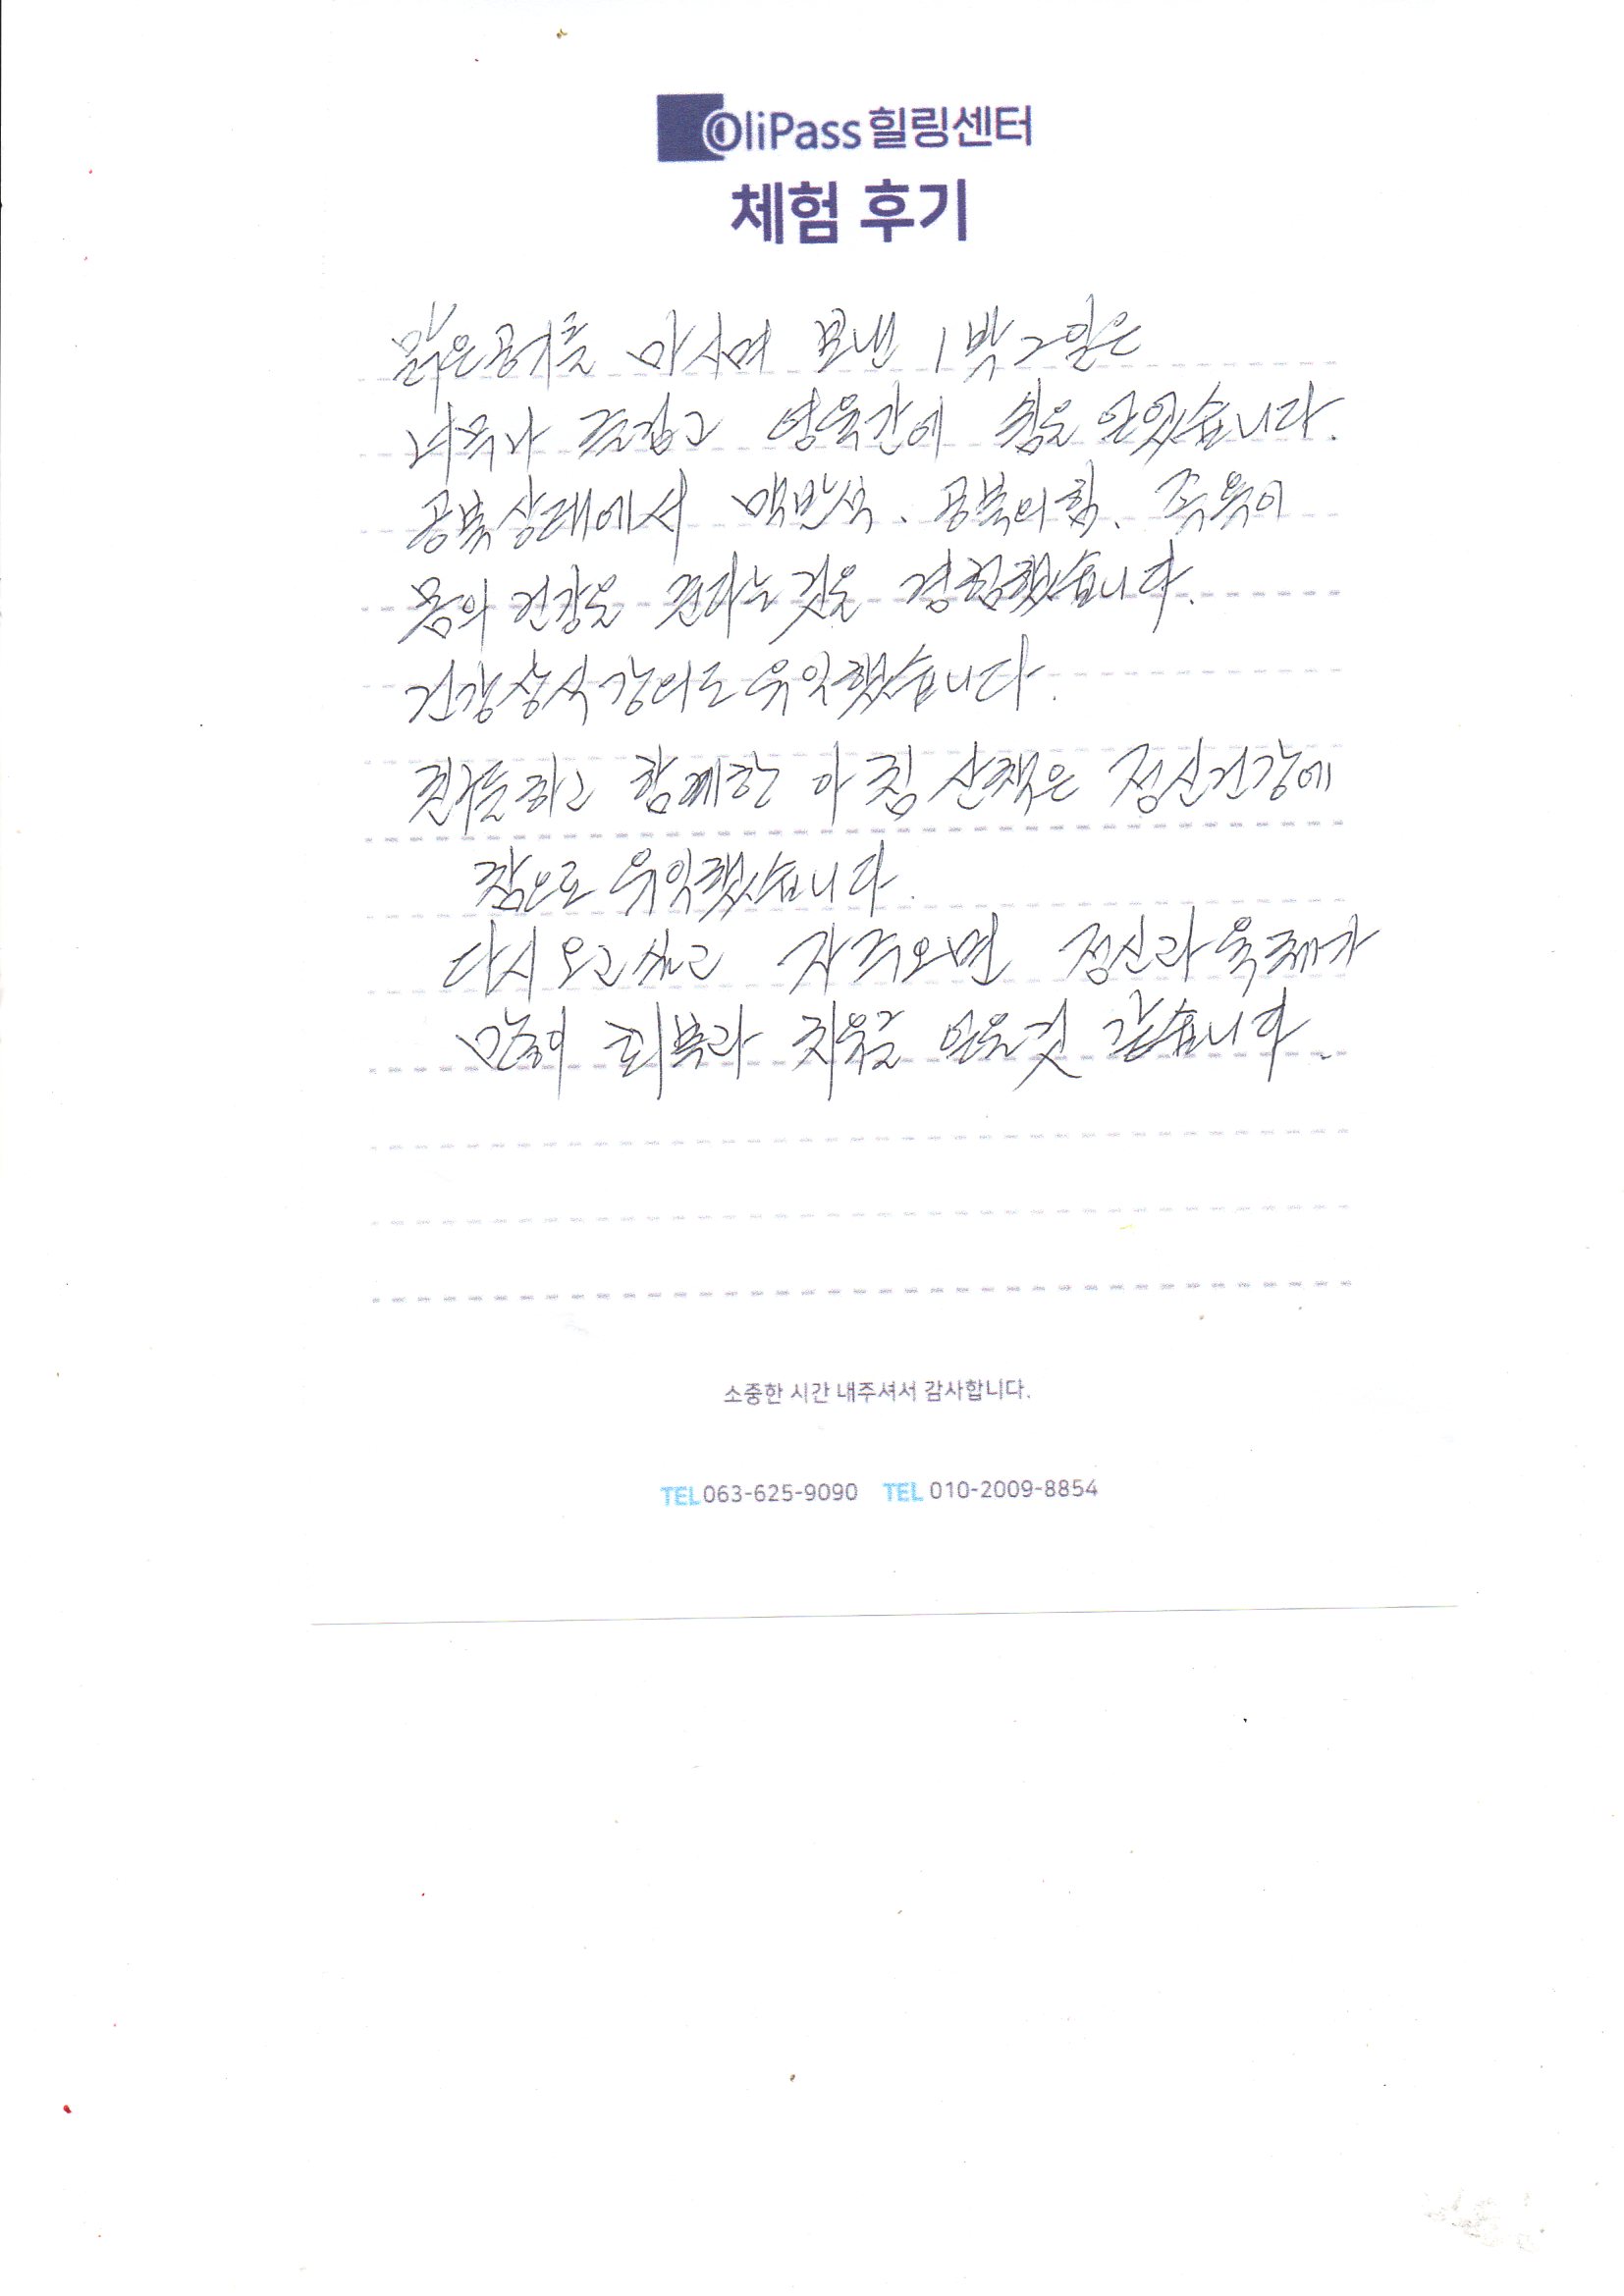 OliPass 힐링센터
체험 후기
맑은공기를 마시며 보낸 1박2일은
너무나 즐겁고 영육간에 쉼을 얻었습니다.
공복상태에서 맥반석, 공복의힘, 족욕이
몸의 건강을 준다는것을 경험했습니다.
건강상식강의도 유익했습니다.
함께한 아침 산책은 정신건강에
참으로 유익했습니다.
다시오고싶고 자주오면 정신과 육체가
많이 회복과 치유를 얻을것 같습니다.
소중한 시간 내주셔서 감사합니다.
TEL 063-625-9090 TEL 010-2009-8854